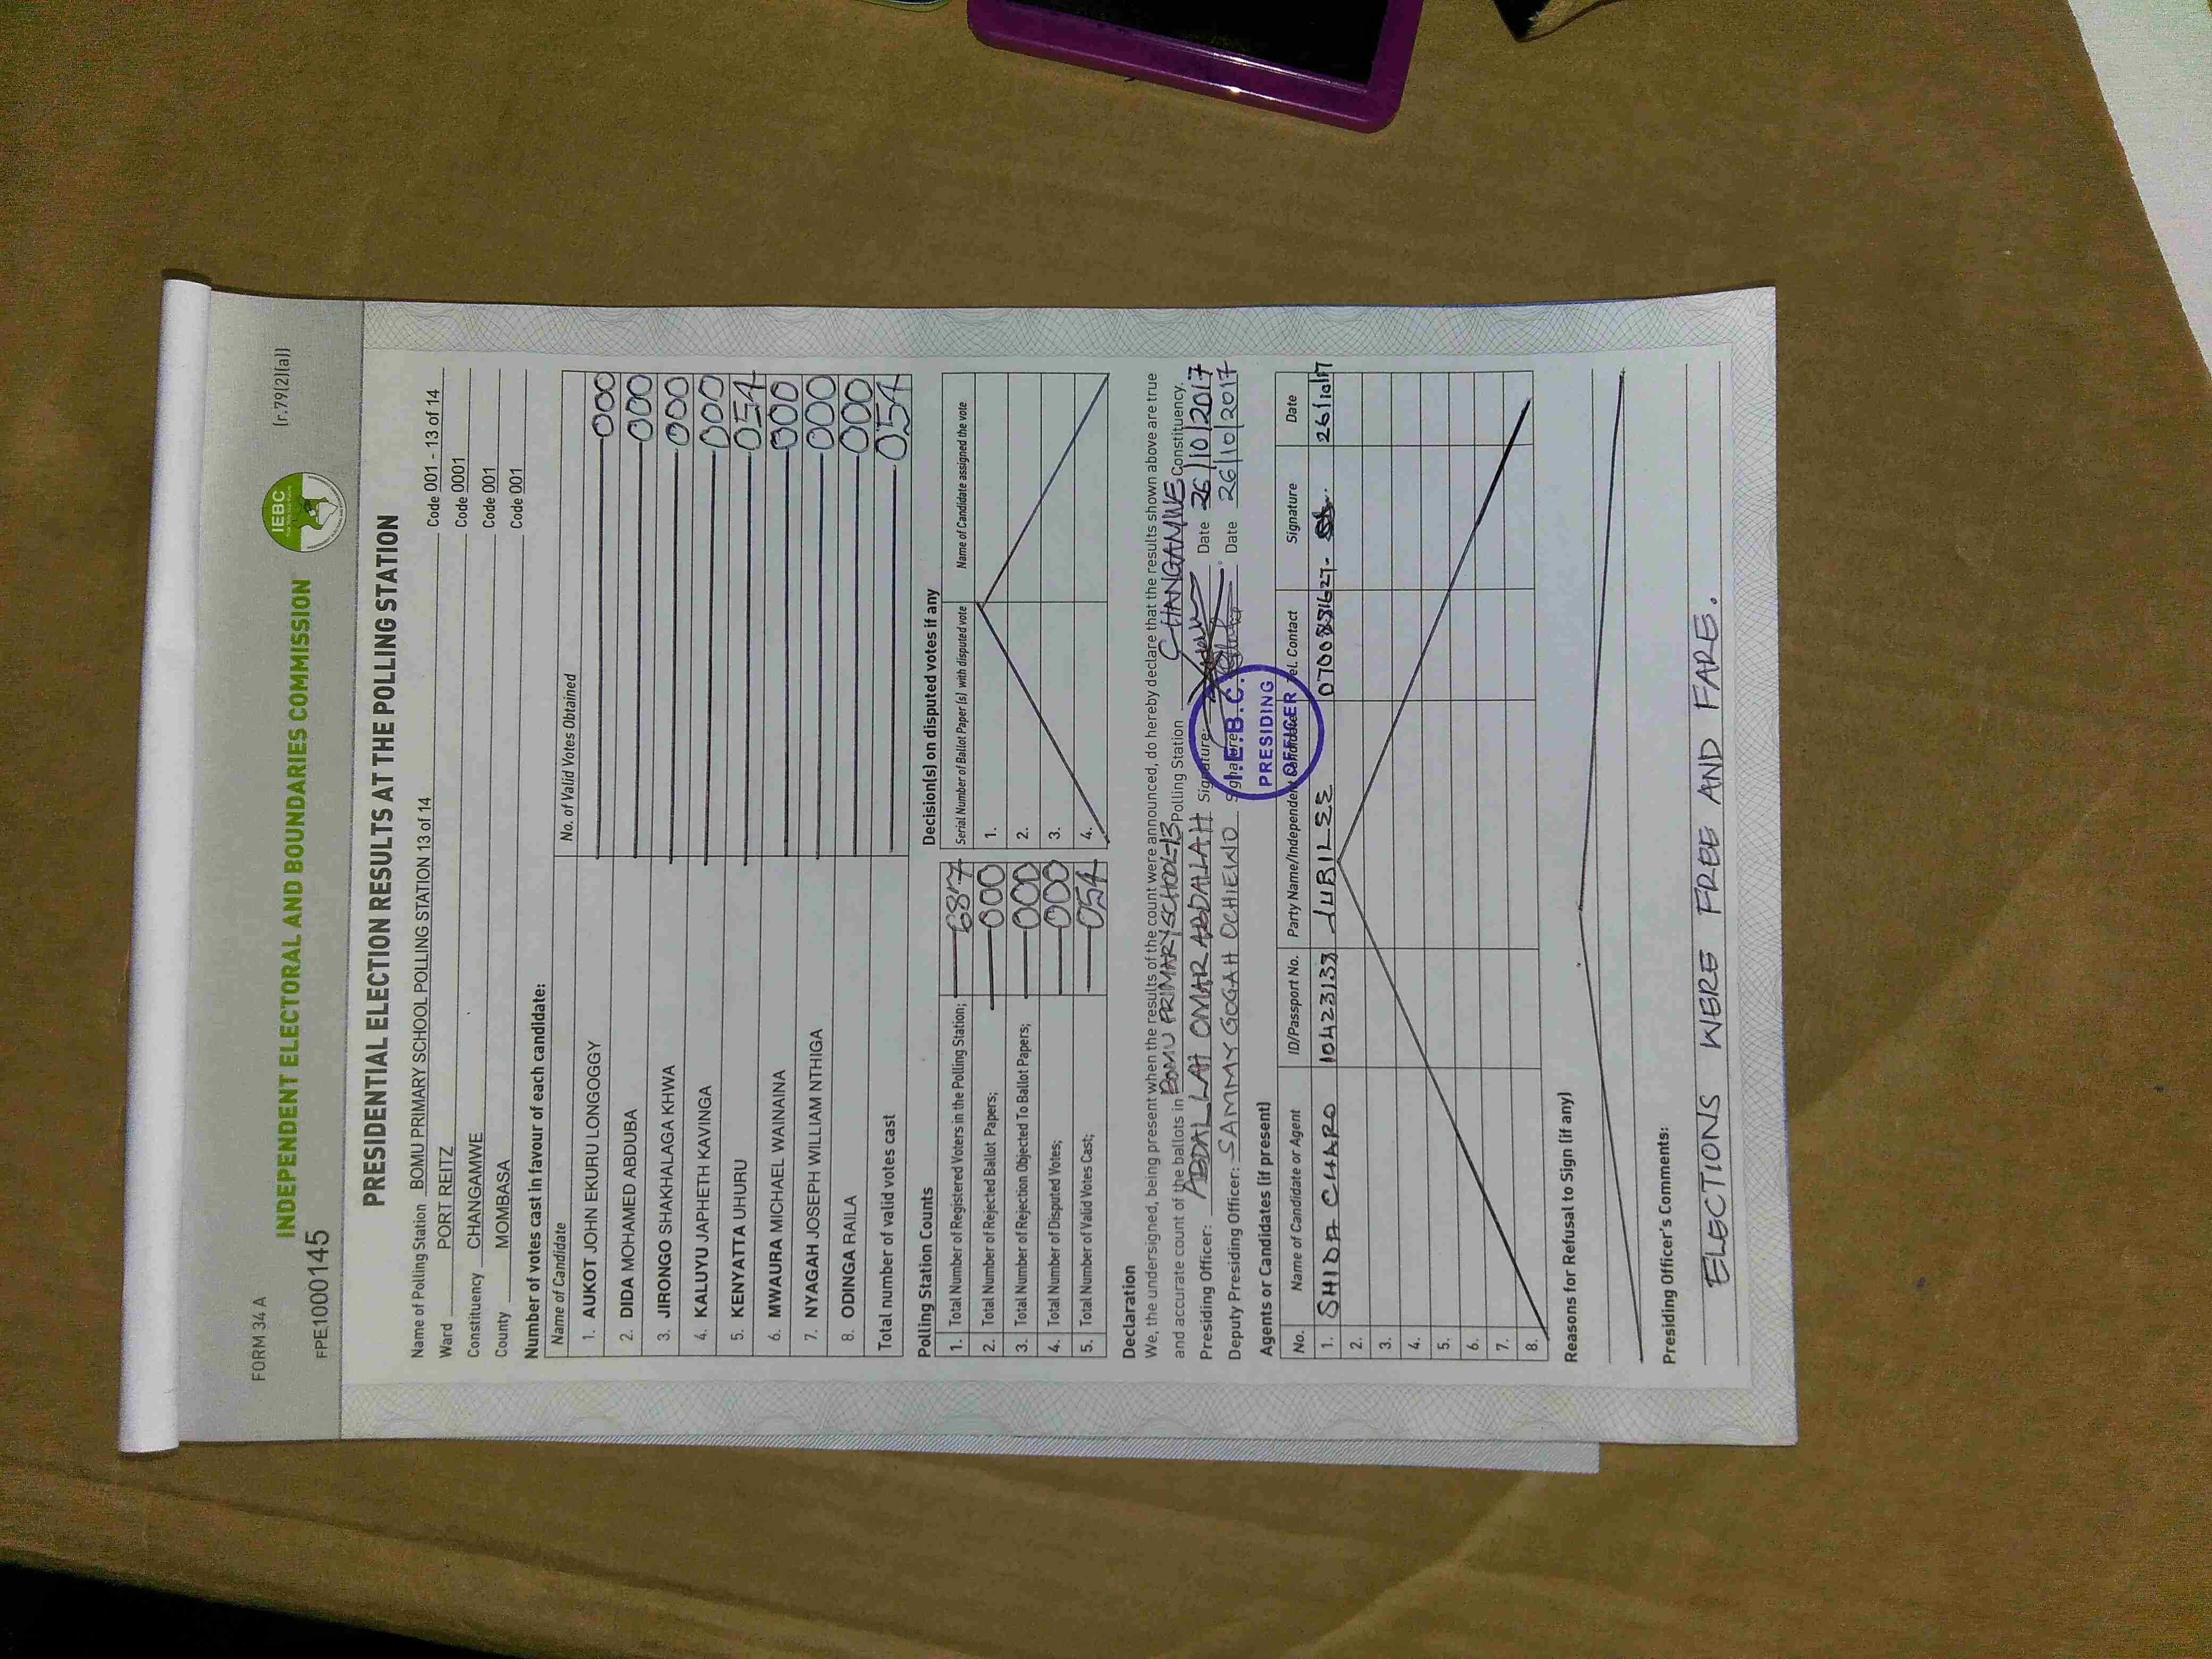 FORM 34 A
(r.79(2)(a))
IEBC
INDEPENDENT ELECTORAL AND BOUNDARIES COMMISSION
FPE1000145
PRESIDENTIAL ELECTION RESULTS AT THE POLLING STATION
Name of Polling Station BOMU PRIMARY SCHOOL POLLING STATION 13 of 14 Code 001 - 13 of 14
Ward PORT REITZ Code 0001
Constituency CHANGAMWE Code 001
County MOMBASA Code 001
Number of votes cast in favour of each candidate:
Name of Candidate No. of Valid Votes Obtained
1. AUKOT JOHN EKURU LONGOGGY 000
2. DIDA MOHAMED ABDUBA 000
3. JIRONGO SHAKHALAGA KHWA 000
4. KALUYU JAPHETH KAVINGA 000
5. KENYATTA UHURU 054
6. MWAURA MICHAEL WAINAINA 000
7. NYAGAH JOSEPH WILLIAM NTHIGA 000
8. ODINGA RAILA 000
Total number of valid votes cast 054
Polling Station Counts
1. Total Number of Registered Voters in the Polling Station; 687
2. Total Number of Rejected Ballot Papers; 000
3. Total Number of Rejection Objected To Ballot Papers; 000
4. Total Number of Disputed Votes; 000
5. Total Number of Valid Votes Cast; 054
Decision(s) on disputed votes if any
Serial Number of Ballot Paper (s) with disputed vote Name of Candidate assigned the vote
1.
2.
3.
4.
Declaration
We, the undersigned, being present when the results of the count were announced, do hereby declare that the results shown above are true
and accurate count of the ballots in BOMU PRIMARY SCHOOL-13 Polling Station CHANGAMWE Constituency.
Presiding Officer: ABDALLAH OMAR ABDALLAH Signature: Date 26/10/2017
Deputy Presiding Officer: SAMMY GOGAH OCHIENO Signature: Date 26/10/2017
I.E.B.C.
PRESIDING
OFFICER
Agents or Candidates (if present)
No. Name of Candidate or Agent ID/Passport No. Party Name/Independent Candidate Tel. Contact Signature Date
1. SHIDA CHARO JUBILEE 26/10/17
2.
3.
4.
5.
6.
7.
8.
Reasons for Refusal to Sign (if any)
Presiding Officer's Comments:
ELECTIONS WERE FREE AND FARE.